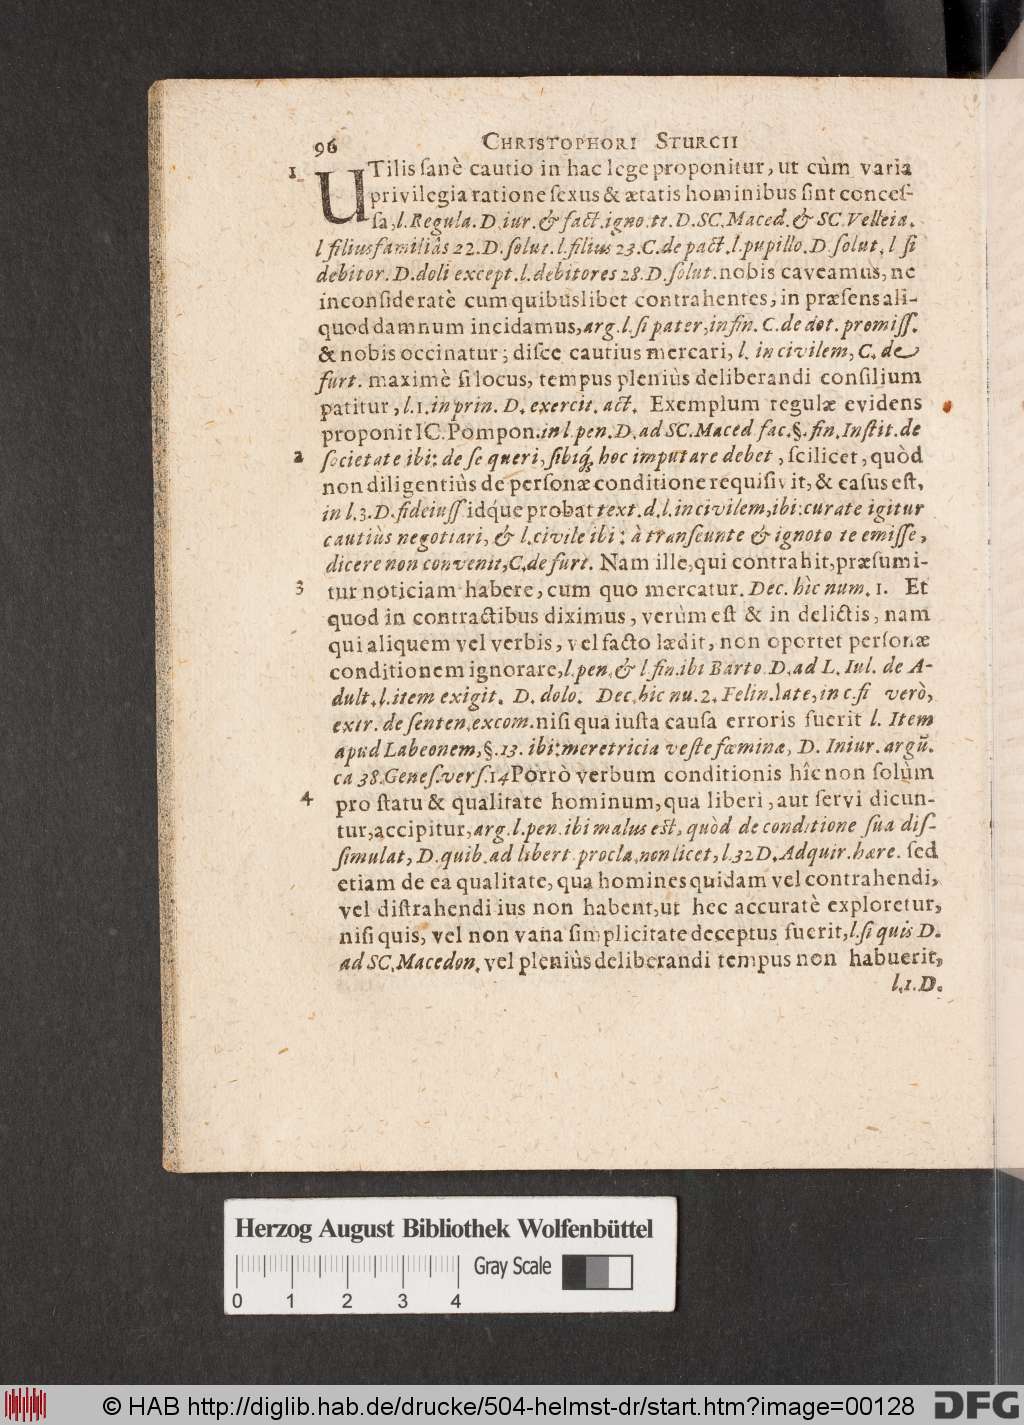 96 CHRISTOPHORI STURCII
1 UTilis sanè cautio in hac lege proponitur, ut cùm varia
privilegia ratione sexus & ætatis hominibus sint conces-
sa, l. Regula. D. iur. & fact. igno. tt. D. SC. Maced. & SC. Velleia.
l filiusfamiliâs 22. D. solut. l. filius 23. C. de pact. l. pupillo. D. solut. l si
debitor. D. doli except. l. debitores 28. D. solut. nobis caveamus, ne
inconsideratè cum quibuslibet contrahentes, in præsens ali-
quod damnum incidamus, arg. l. si pater, in fin. C. de dot. promiss.
& nobis occinatur; disce cautius mercari, l. in civilem, C. de
furt. maximè si locus, tempus pleniùs deliberandi consilium
patitur, l. 1. in prin. D. exercit. act. Exemplum regulæ evidens
proponit IC. Pompon. in l pen. D. ad SC. Maced fac. §. fin. Instit. de
2 societate ibi: de se queri, sibiq́; hoc imputare debet, scilicet, quòd
non diligentiùs de personæ conditione requisivit, & casus est,
in l. 3. D. fideiuss idq́ue probat text. d. l. in civilem, ibi: curate igitur
cautiùs negotiari, & l. civile ibi: à transeunte & ignoto te emisse,
dicere non convenit, C. de furt. Nam ille, qui contrahit, præsumi-
3 tur noticiam habere, cum quo mercatur. Dec. hîc num. 1. Et
quod in contractibus diximus, verùm est & in delictis, nam
qui aliquem vel verbis, vel facto lædit, non oportet personæ
conditionem ignorare, l. pen. & l. fin. ibi Barto. D. ad L. Iul. de A-
dult. l. item exigit. D. dolo. Dec. hic nu. 2. Felin. late, in c. si verò,
extr. de senten. excom. nisi qua iusta causa erroris fuerit l. Item
apud Labeonem, §. 13. ibi: meretricia veste fœminæ, D. Iniur. argū.
ca 38. Genes. vers. 14 Porrò verbum conditionis hîc non solùm
4 pro statu & qualitate hominum, qua liberi, aut servi dicun-
tur, accipitur, arg. l. pen. ibi malus est, quòd de conditione sua dis-
simulat, D. quib. ad libert procla. non licet, l. 32 D. Adquir. hære. sed
etiam de ea qualitate, qua homines quidam vel contrahendi,
vel distrahendi ius non habent, ut hec accuratè exploretur,
nisi quis, vel non vana simplicitate deceptus fuerit, l. si quis D.
ad SC. Macedon. vel pleniùs deliberandi tempus non habuerit,
l. 1. D.
Herzog August Bibliothek Wolfenbüttel
Gray Scale
0 1 2 3 4
© HAB http://diglib.hab.de/drucke/504-helmst-dr/start.htm?image=00128
DFG